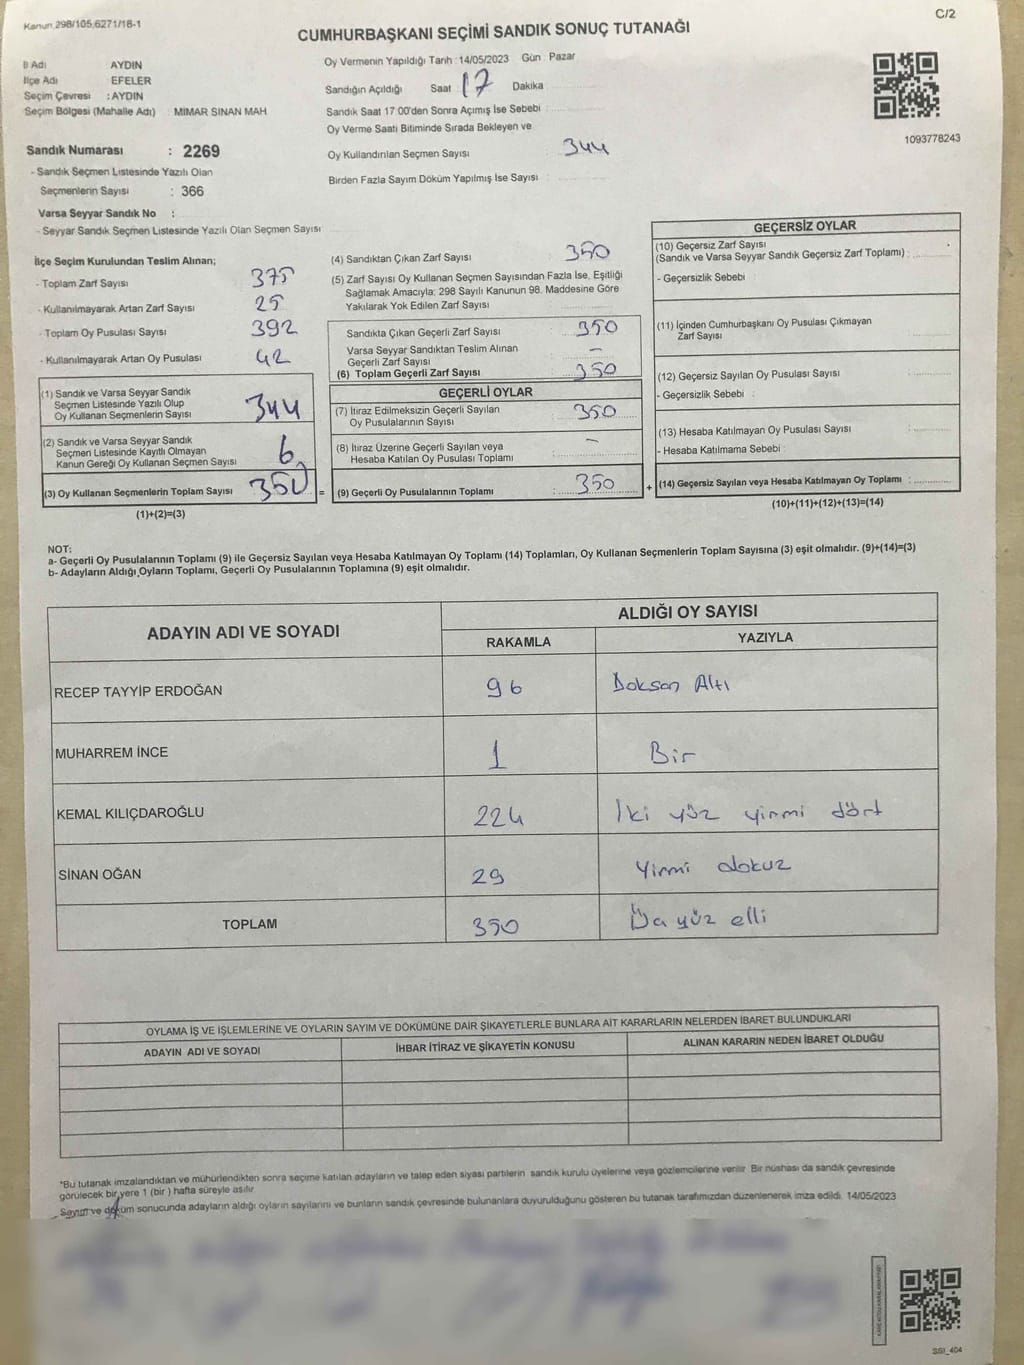 Kanun 298/105,6271/18-1
C/2
CUMHURBAŞKANI SEÇİMİ SANDIK SONUÇ TUTANAĞI
İl Adı AYDIN
İlçe Adı EFELER
Seçim Çevresi : AYDIN
Seçim Bölgesi (Mahalle Adı) MİMAR SİNAN MAH
Sandık Numarası : 2269
- Sandık Seçmen Listesinde Yazılı Olan
Seçmenlerin Sayısı : 366
Varsa Seyyar Sandık No :
- Seyyar Sandık Seçmen Listesinde Yazılı Olan Seçmen Sayısı
Oy Vermenin Yapıldığı Tarih : 14/05/2023 Gün : Pazar
Sandığın Açıldığı Saat 17 Dakika
Sandık Saat 17:00'den Sonra Açımış İse Sebebi :
Oy Verme Saati Bitiminde Sırada Bekleyen ve
Oy Kullandırılan Seçmen Sayısı : 344
Birden Fazla Sayım Döküm Yapılmış İse Sayısı :
1093778243
İlçe Seçim Kurulundan Teslim Alınan;
- Toplam Zarf Sayısı 375
- Kullanılmayarak Artan Zarf Sayısı 25
- Toplam Oy Pusulası Sayısı 392
- Kullanılmayarak Artan Oy Pusulası 42
(1) Sandık ve Varsa Seyyar Sandık
Seçmen Listesinde Yazılı Olup
Oy Kullanan Seçmenlerin Sayısı 344
(2) Sandık ve Varsa Seyyar Sandık
Seçmen Listesinde Kayıtlı Olmayan
Kanun Gereği Oy Kullanan Seçmen Sayısı 6
(3) Oy Kullanan Seçmenlerin Toplam Sayısı 350 =
(1)+(2)=(3)
(4) Sandıktan Çıkan Zarf Sayısı : 350
(5) Zarf Sayısı Oy Kullanan Seçmen Sayısından Fazla İse, Eşitliği
Sağlamak Amacıyla; 298 Sayılı Kanunun 98. Maddesine Göre
Yakılarak Yok Edilen Zarf Sayısı :
Sandıkta Çıkan Geçerli Zarf Sayısı : 350
Varsa Seyyar Sandıktan Teslim Alınan
Geçerli Zarf Sayısı : -
(6) Toplam Geçerli Zarf Sayısı : 350
GEÇERLİ OYLAR
(7) İtiraz Edilmeksizin Geçerli Sayılan
Oy Pusulalarının Sayısı : 350
(8) İtiraz Üzerine Geçerli Sayılan veya
Hesaba Katılan Oy Pusulası Toplamı : -
(9) Geçerli Oy Pusulalarının Toplamı : 350 +
GEÇERSİZ OYLAR
(10) Geçersiz Zarf Sayısı
(Sandık ve Varsa Seyyar Sandık Geçersiz Zarf Toplamı) :
- Geçersizlik Sebebi :
(11) İçinden Cumhurbaşkanı Oy Pusulası Çıkmayan
Zarf Sayısı :
(12) Geçersiz Sayılan Oy Pusulası Sayısı :
- Geçersizlik Sebebi :
(13) Hesaba Katılmayan Oy Pusulası Sayısı :
- Hesaba Katılmama Sebebi :
(14) Geçersiz Sayılan veya Hesaba Katılmayan Oy Toplamı :
(10)+(11)+(12)+(13)=(14)
NOT:
a- Geçerli Oy Pusulalarının Toplamı (9) ile Geçersiz Sayılan veya Hesaba Katılmayan Oy Toplamı (14) Toplamları, Oy Kullanan Seçmenlerin Toplam Sayısına (3) eşit olmalıdır. (9)+(14)=(3)
b- Adayların Aldığı Oyların Toplamı, Geçerli Oy Pusulalarının Toplamına (9) eşit olmalıdır.
ADAYIN ADI VE SOYADI ALDIĞI OY SAYISI
RAKAMLA YAZIYLA
RECEP TAYYİP ERDOĞAN 96 Doksan Altı
MUHARREM İNCE 1 Bir
KEMAL KILIÇDAROĞLU 224 İki yüz yirmi dört
SİNAN OĞAN 29 Yirmi dokuz
TOPLAM 350 yüz elli
OYLAMA İŞ VE İŞLEMLERİNE VE OYLARIN SAYIM VE DÖKÜMÜNE DAİR ŞİKAYETLERLE BUNLARA AİT KARARLARIN NELERDEN İBARET BULUNDUKLARI
ADAYIN ADI VE SOYADI İHBAR İTİRAZ VE ŞİKAYETİN KONUSU ALINAN KARARIN NEDEN İBARET OLDUĞU
*Bu tutanak imzalandıktan ve mühürlendikten sonra seçime katılan adayların ve talep eden siyasi partilerin sandık kurulu üyelerine veya gözlemcilerine verilir. Bir nüshası da sandık çevresinde
görülecek bir yere 1 (bir ) hafta süreyle asılır
Sayım ve döküm sonucunda adayların aldığı oyların sayılarını ve bunların sandık çevresinde bulunanlara duyurulduğunu gösteren bu tutanak tarafımızdan düzenlenerek imza edildi. 14/05/2023
SSI_404